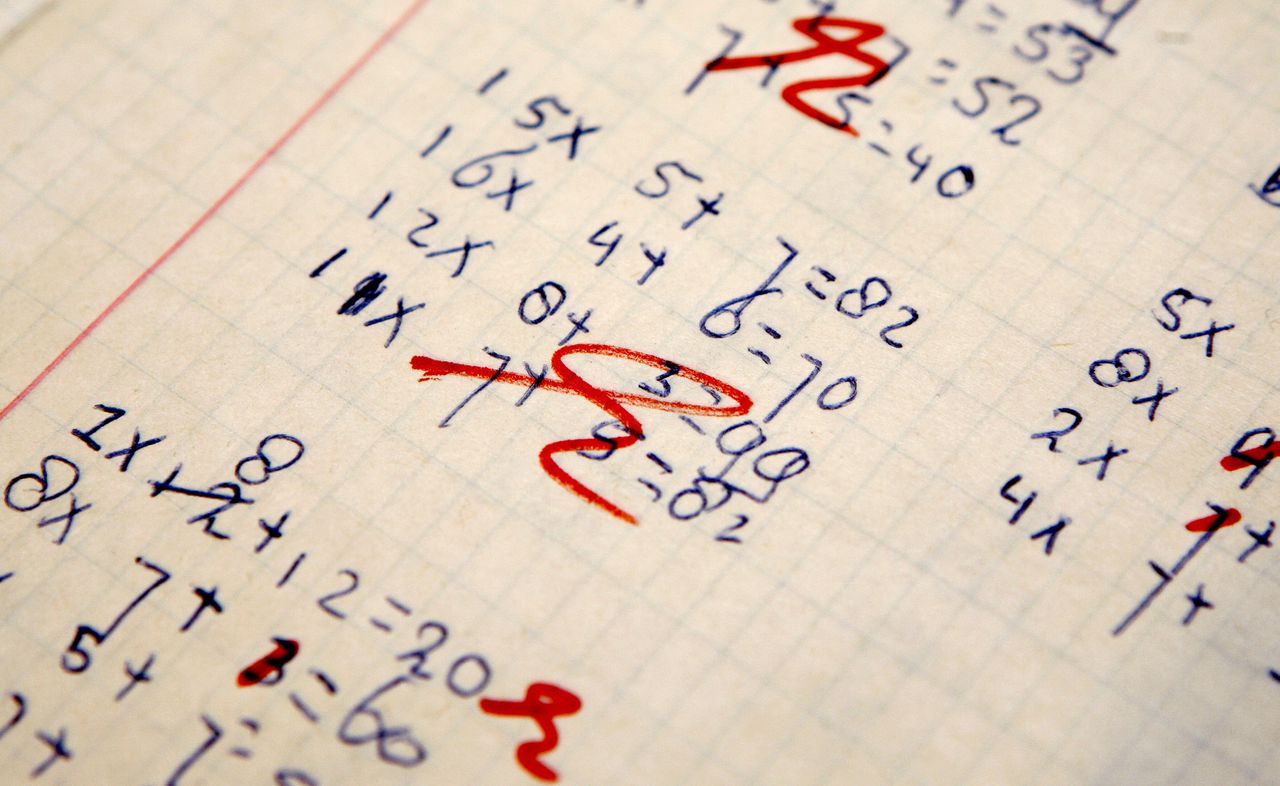 = 53
7 = 52
7 + 5 = 40
15x 5+ 7 = 82
16x 4+ 6 = 70
12x 8+ 3 = 99
11x 7+ 5 = 82
1x 8 + 12 = 20
8x 7 + 3 = 60
5 + 7 =
5x
8x 9
2x 7+
4x 7+